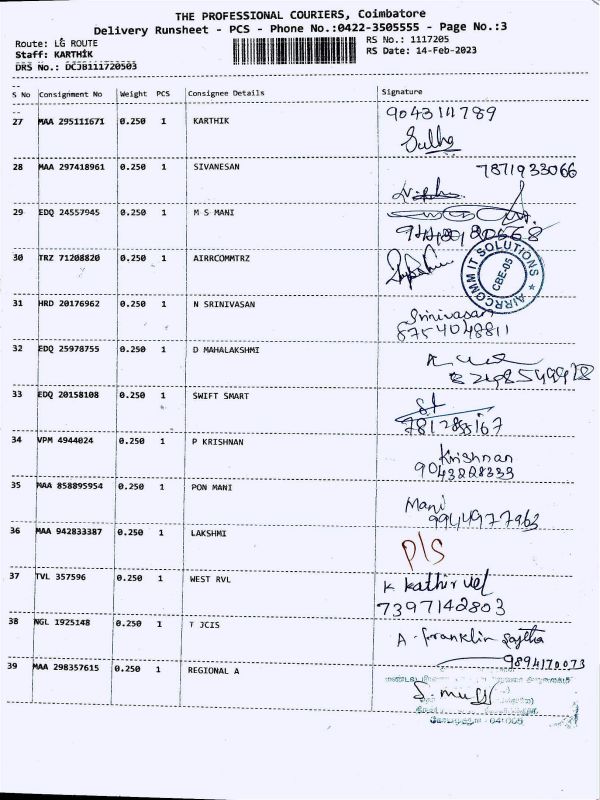 THE PROFESSIONAL COURIERS, Coimbatore
Delivery Runsheet - PCS - Phone No.:0422-3505555 - Page No.:3
Route: LG ROUTE
Staff: KARTHIK
DRS No.: DCJB111720503
RS No.: 1117205
RS Date: 14-Feb-2023
S No Consignment No Weight PCS Consignee Details Signature
27 MAA 295111671 0.250 1 KARTHIK
28 MAA 297418961 0.250 1 SIVANESAN 7871933066
29 EDQ 24557945 0.250 1 M S MANI
30 TRZ 71208820 0.250 1 AIRRCOMMTRZ
AIRRCOMM IT SOLUTIONS
CBE-05
31 HRD 20176962 0.250 1 N SRINIVASAN Srinivasan
8754048811
32 EDQ 25978755 0.250 1 D MAHALAKSHMI
33 EDQ 20158108 0.250 1 SWIFT SMART
34 VPM 4944024 0.250 1 P KRISHNAN Krishnan
9043828333
35 MAA 858895954 0.250 1 PON MANI Mani
9944977963
36 MAA 942833387 0.250 1 LAKSHMI P/S
37 TVL 357596 0.250 1 WEST RVL K Kathirvel
7397142803
38 NGL 1925148 0.250 1 T JCIS A. Franklin
9894170073
39 MAA 298357615 0.250 1 REGIONAL A